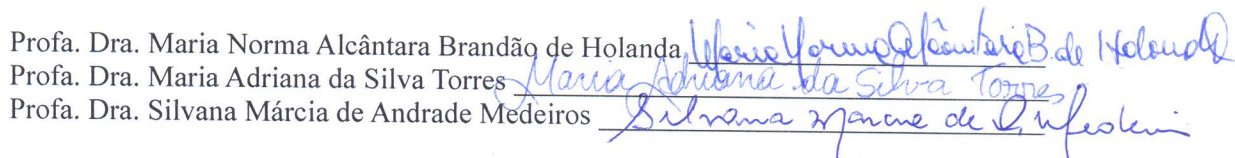 Profa. Dra. Maria Norma Alcântara Brandão de Holanda Maria Norma Alcântara B. de Holanda
Profa. Dra. Maria Adriana da Silva Torres Maria Adriana da Silva Torres
Profa. Dra. Silvana Márcia de Andrade Medeiros Silvana Márcia de A. Medeiros